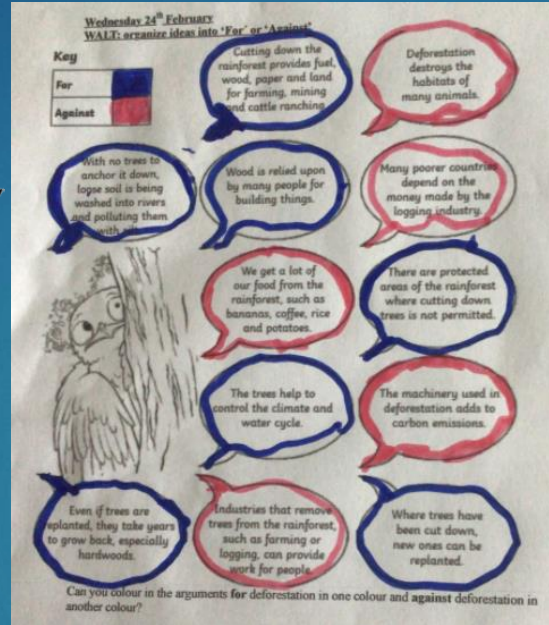 Wednesday 24th February
WALT: organize ideas into 'For' or 'Against'
Key
For
Against
Cutting down the
rainforest provides fuel,
wood, paper and land
for farming, mining
and cattle ranching.
Deforestation
destroys the
habitats of
many animals.
With no trees to
anchor it down,
loose soil is being
washed into rivers
and polluting them
with
Wood is relied upon
by many people for
building things.
Many poorer countries
depend on the
money made by the
logging industry.
We get a lot of
our food from the
rainforest, such as
bananas, coffee, rice
and potatoes.
There are protected
areas of the rainforest
where cutting down
trees is not permitted.
The trees help to
control the climate and
water cycle.
The machinery used in
deforestation adds to
carbon emissions.
Even if trees are
replanted, they take years
to grow back, especially
hardwoods.
Industries that remove
trees from the rainforest,
such as farming or
logging, can provide
work for people.
Where trees have
been cut down,
new ones can be
replanted.
Can you colour in the arguments for deforestation in one colour and against deforestation in
another colour?